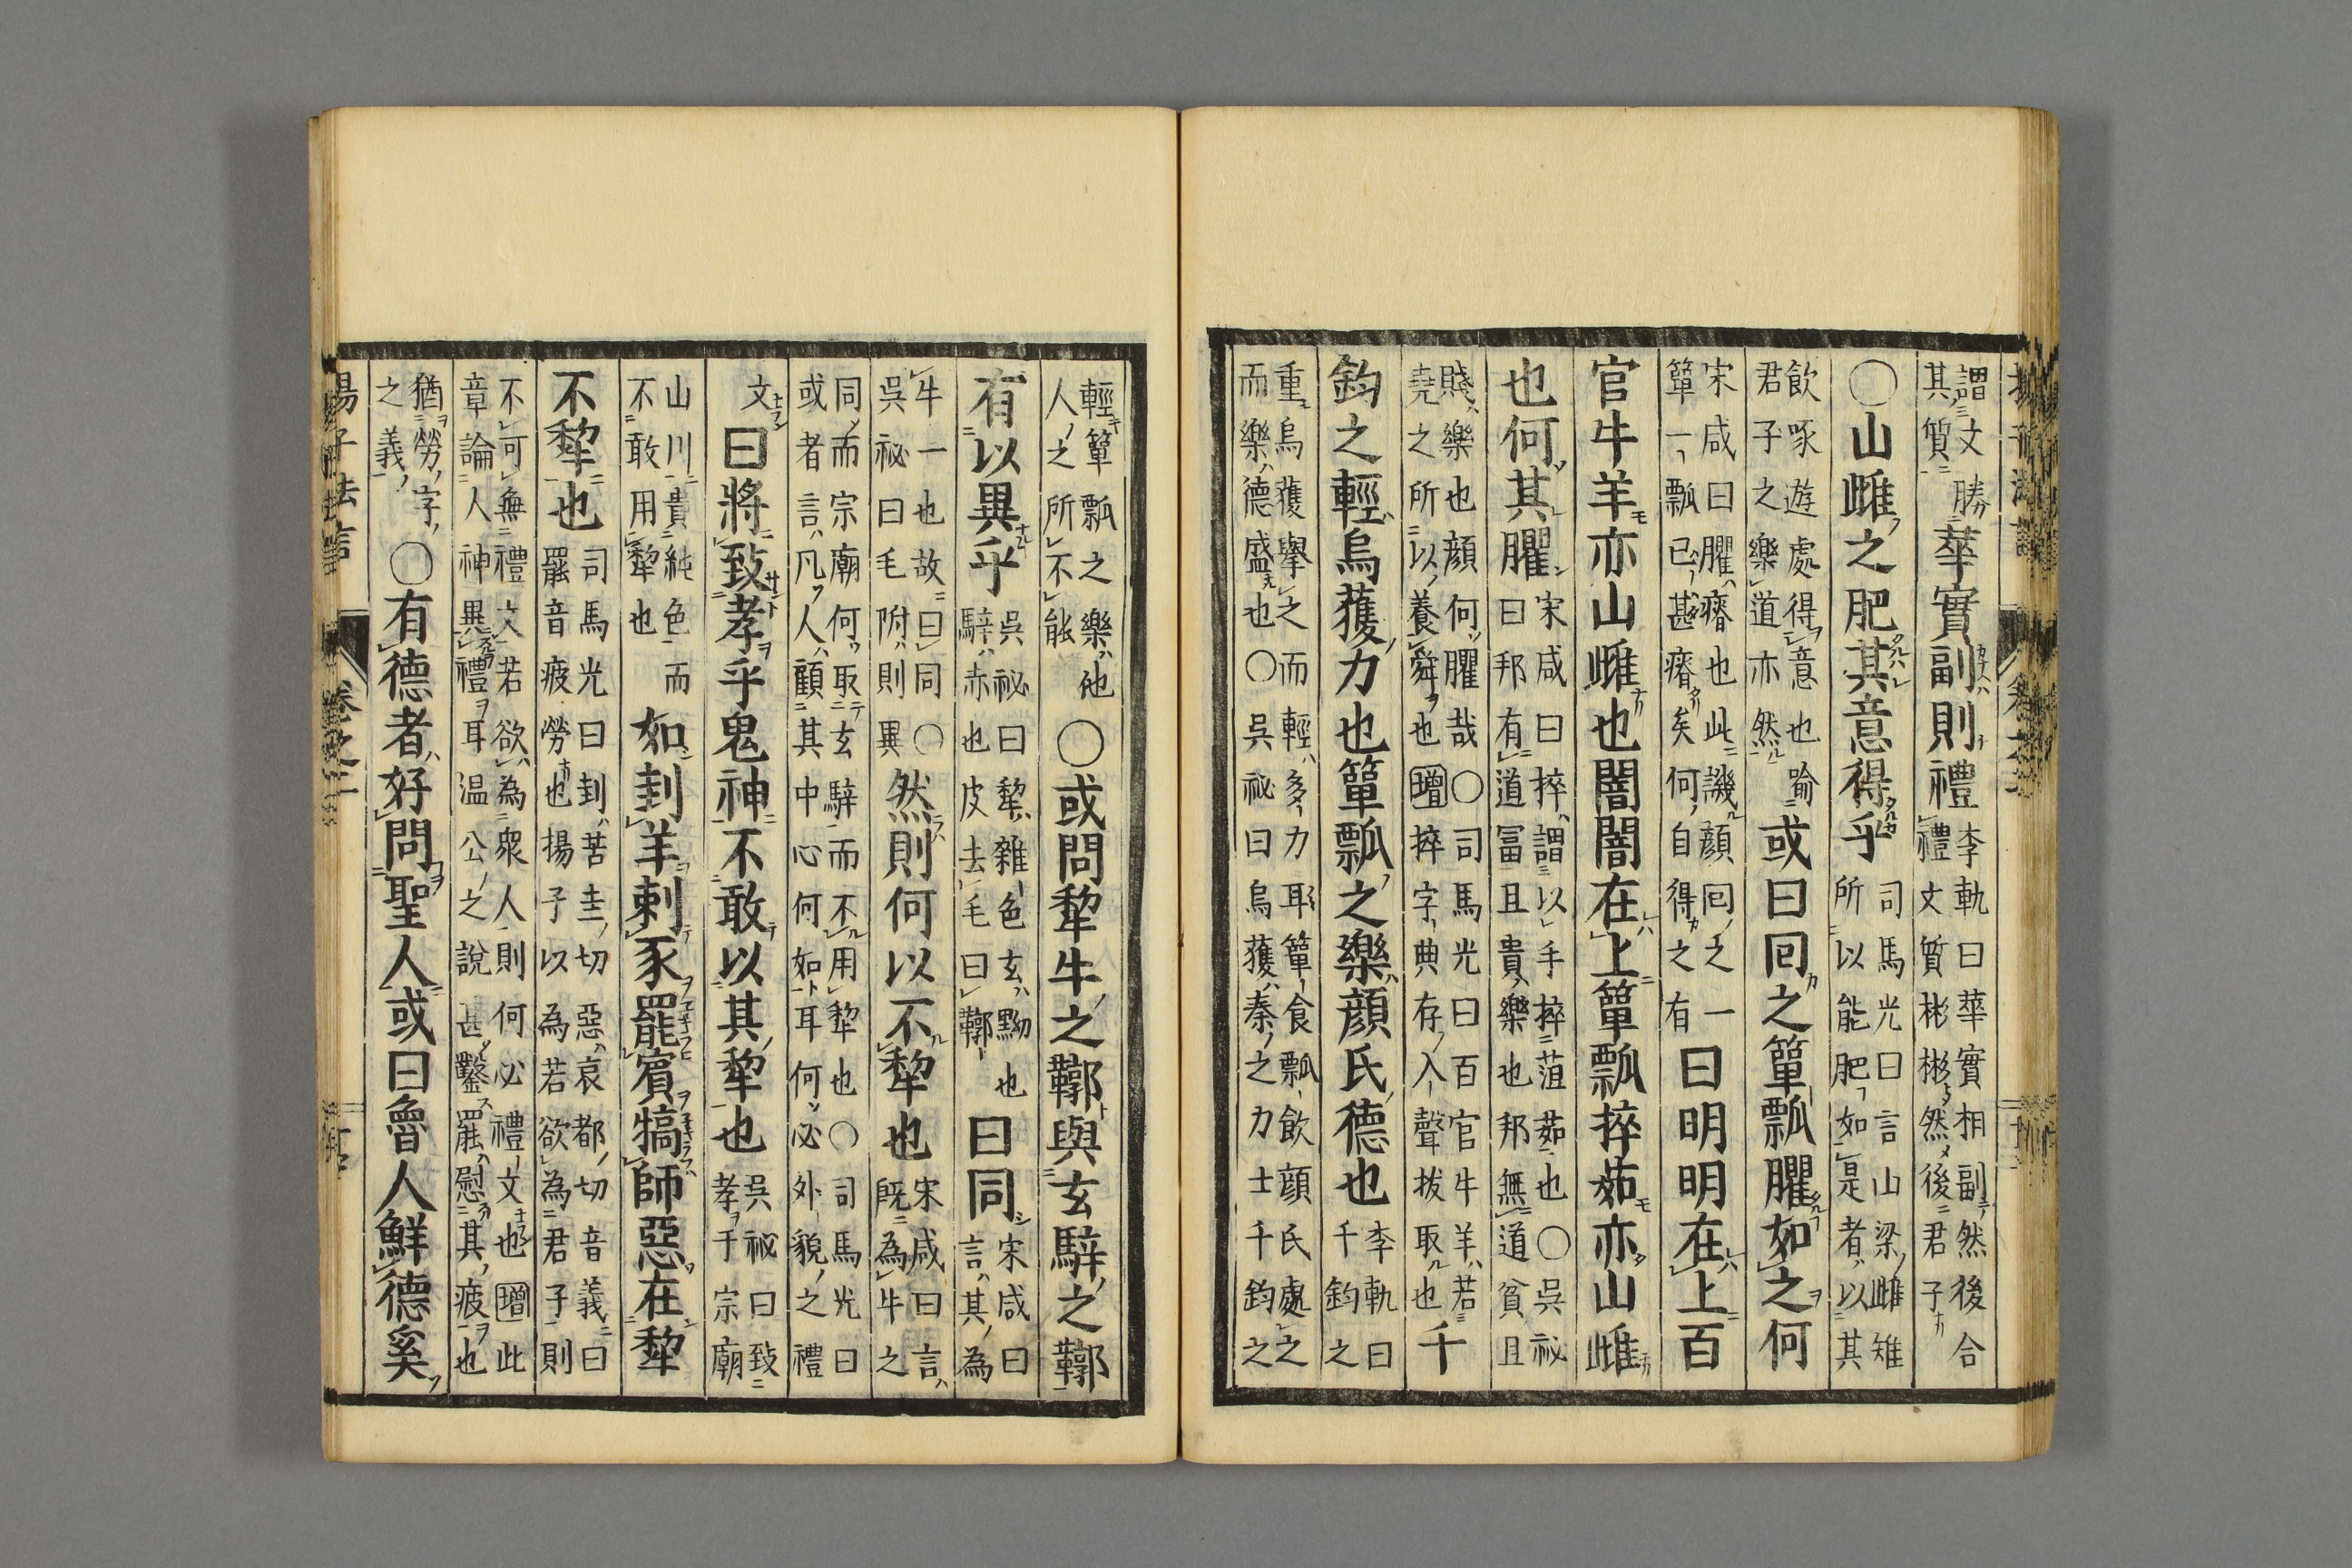 謂文勝其質華實副則禮李軌曰華實相副然後合禮文質彬彬然後君子
〇山雌之肥其意得乎司馬光曰言山梁雌雉所以能肥如是者以其
飲啄遊處得意也喻君子之樂道亦然或曰回之簞瓢臞如之何
宋咸曰臞瘠也此譏顔回之一簞一瓢已甚瘠矣何自得之有曰明明在上百
官牛羊亦山雌也闇闇在上簞瓢捽茹亦山雌
也何其臞宋咸曰捽謂以手捽菹茹也〇吳祕曰邦有道冨且貴樂也邦無道貧且
賤樂也顔何臞哉〇司馬光曰百官牛羊若堯之所以養舜也增捽字典存入聲拔取也千
鈞之輕烏獲力也簞瓢之樂顔氏德也李軌曰千鈞之
重烏獲擧之而輕多力耳簞食瓢飲顔氏處之而樂德盛也〇吳祕曰烏獲秦之力士千鈞之
輕簞瓢之樂他人之所不能〇或問犂牛之鞹與玄騂之鞹
有以異乎吳祕曰犂雜色玄黝也騂赤也皮去毛曰鞹曰同宋咸曰言其為
牛一也故曰同〇吳祕曰毛附則異然則何以不犂也宋咸曰言既為牛之
同而宗廟何取玄騂而不用犂也〇司馬光曰或者言凡人顧其中心何如耳何必外貌之禮
文曰將致孝乎鬼神不敢以其犂也吳祕曰致孝于宗廟
山川貴純色而不敢用犂也如刲羊刺豕罷賓犒師惡在犂
不犂也司馬光曰刲苦圭切惡哀都切音義曰罷音疲勞也揚子以為若欲為君子則
不可無禮文若欲為衆人則何必禮文也增此章論人神異禮耳温公之說甚鑿罷慰其疲也
猶勞字之義〇有德者好問聖人或曰魯人鮮德奚
揚子法言 卷之三